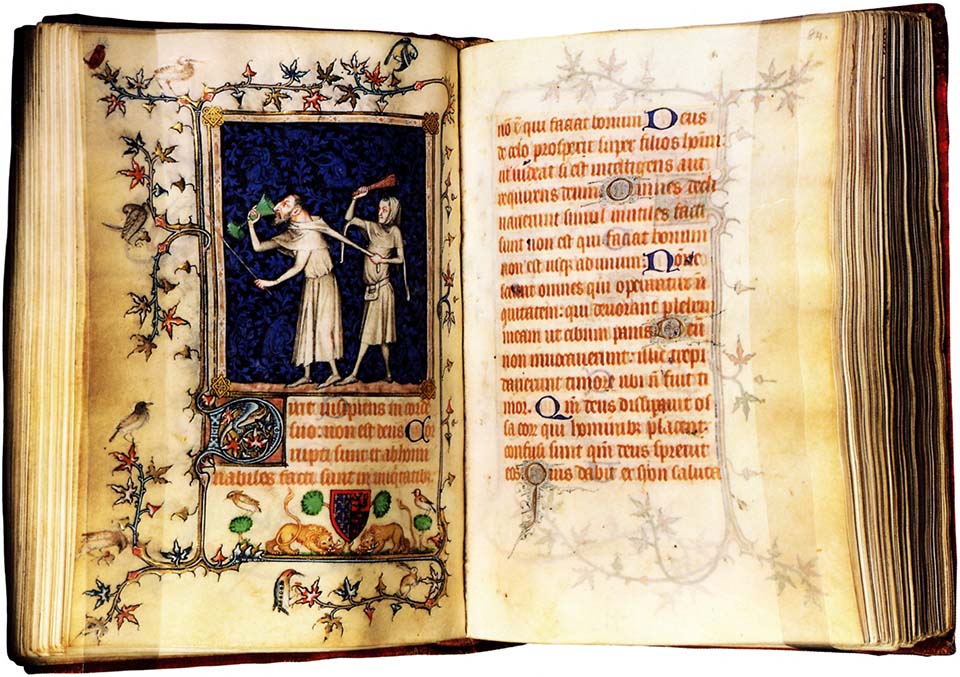 Dixit insipiens in corde
suo: non est deus Cor
rupti sunt et abhomi
nabiles facti sunt in iniquitatibꝫ
84.
nō ē qui faciat bonum Deus
de celo prospexit super filios hoīm
ut uideat si est intelligens aut
requirens deum Omnes decli
nauerunt simul inutiles facti
sunt non est qui faciat bonum
non est usqꝫ ad unum: Nonne
scient omnes qui operantur ī
quitatem: qui deuorant plebem
meam ut cibum panis Deū
non inuocauerunt: illic trepi
dauerunt timore ubi ñ fuit ti
mor. Qm̄ deus dissipauit os
sa eoꝝ qui hominibꝫ placent:
confusi sunt qm̄ deus spreuit
eos. Quis dabit ex syon saluta